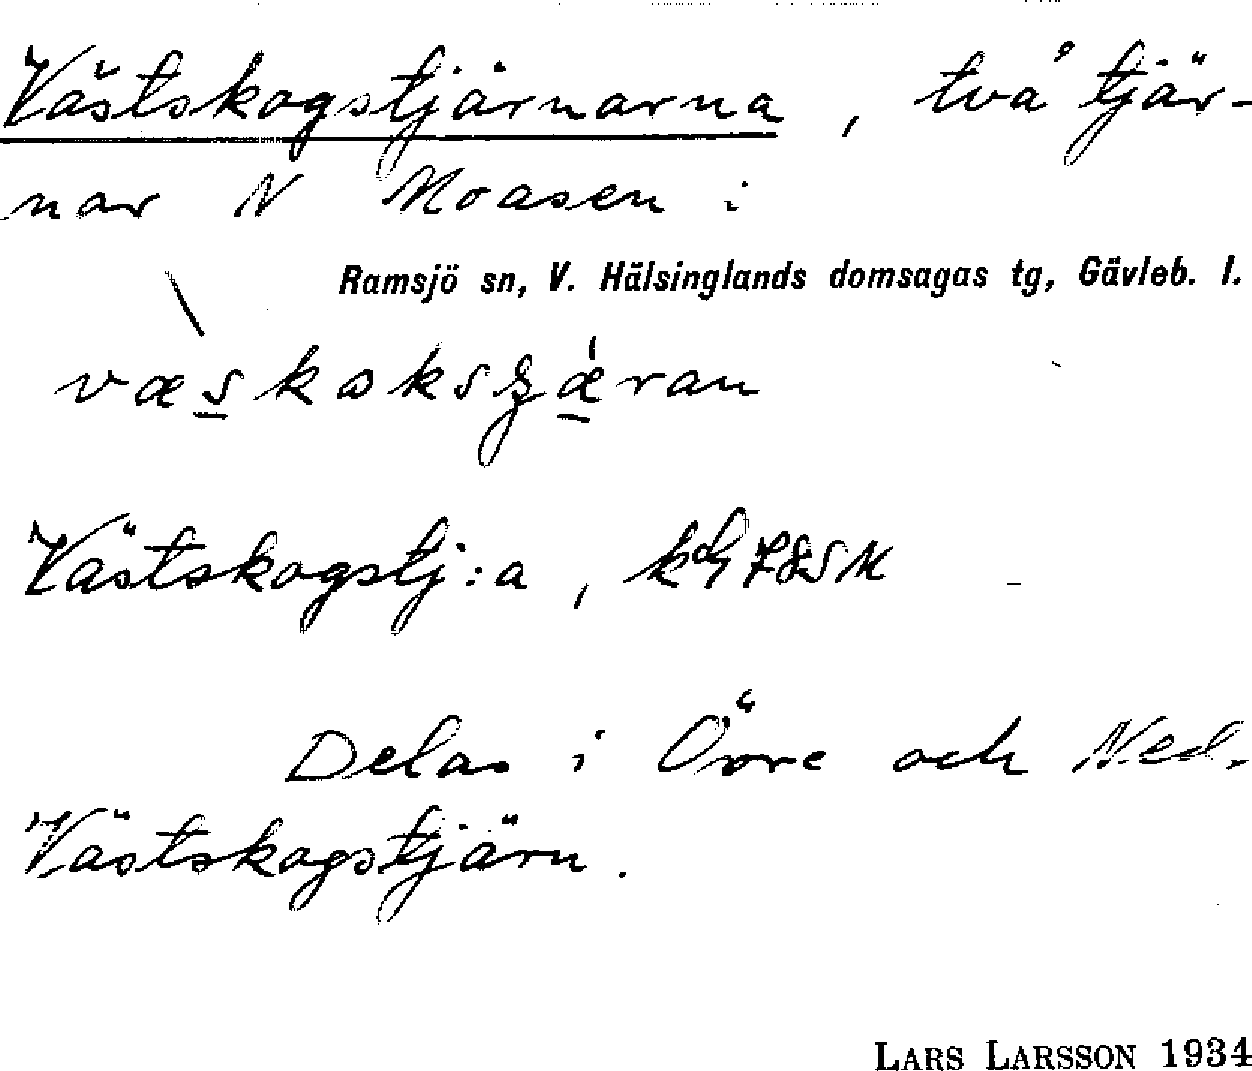 Västskogstjärnarna, två tjär-
nar N Moasen i
Ramsjö sn, V. Hälsinglands domsagas tg, Gävleb. l.
Västskogstj:a,
Delas i Övre och Ned.
Västskogstjärn.
LARS LARSSON 1934